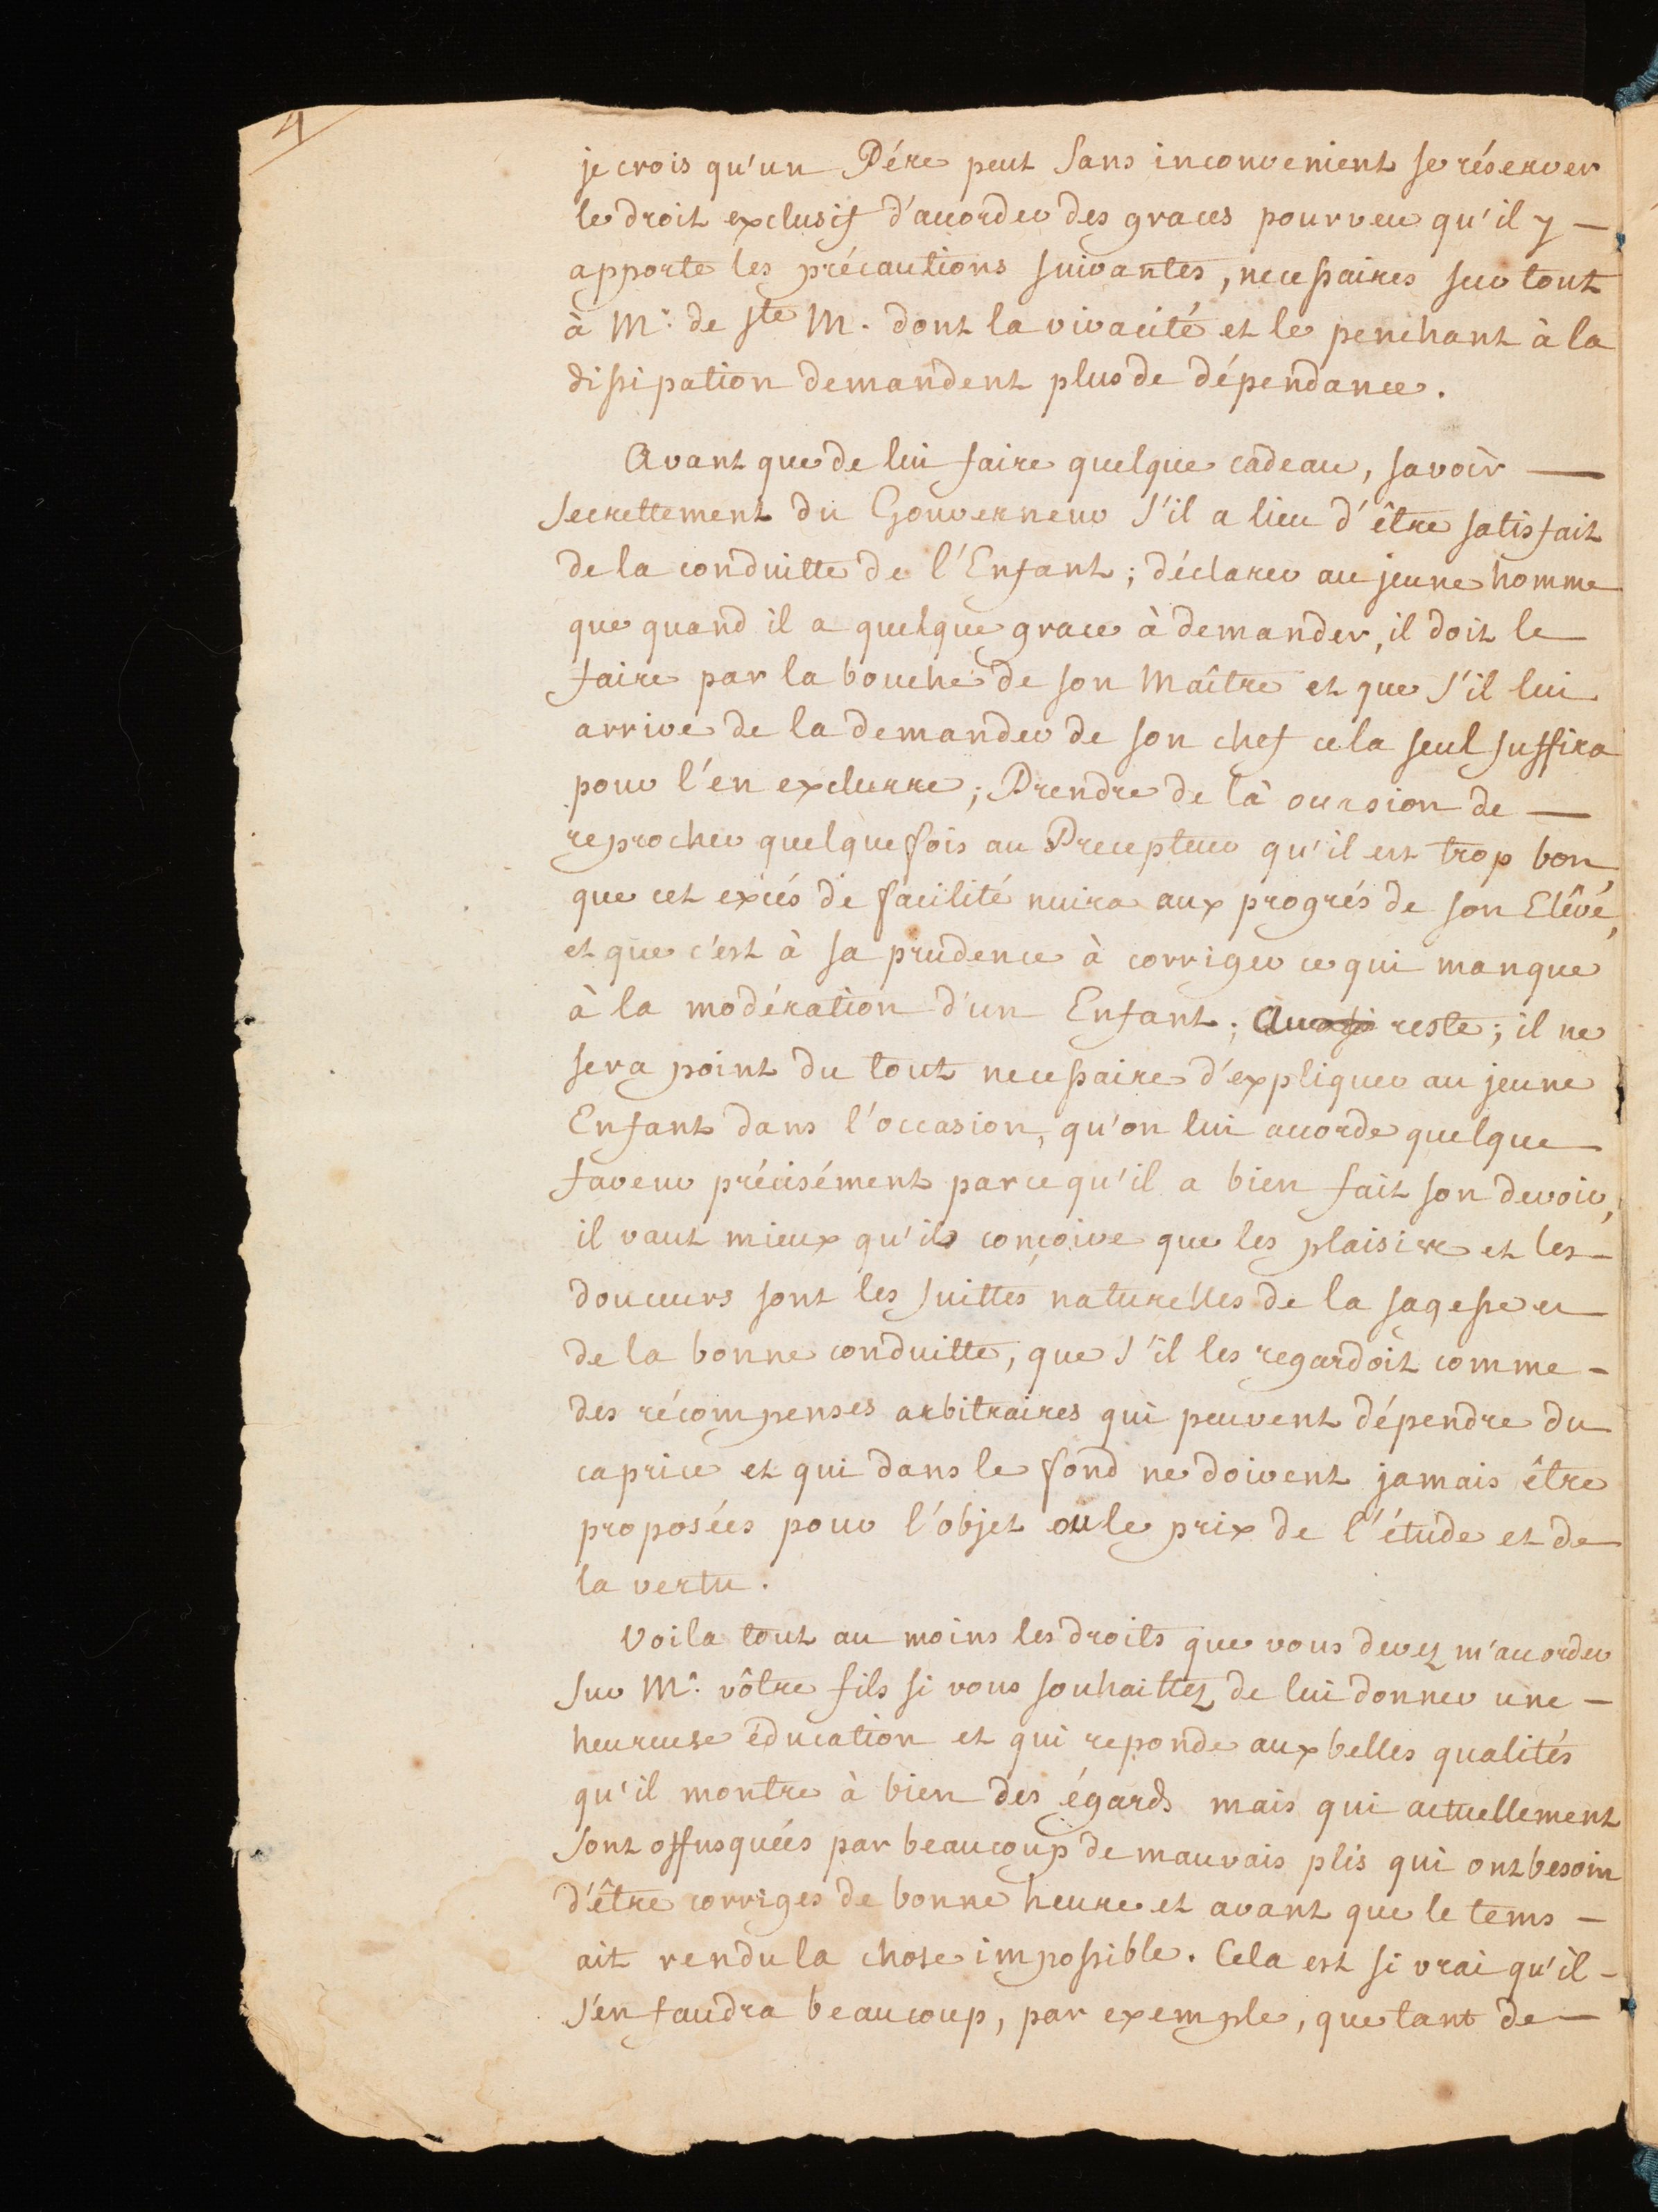 4
je crois qu'un Pére peut sans inconvenient se réserver
le droit exclusif d'accorder des graces pourveu qu'il y —
apporte les précautions suivantes, necessaires sur tout
à Mr. de Ste M. dont la vivacité et le penchant à la
dissipation demandent plus de dépendance.
Avant que de lui faire quelque cadeau, savoir —
secrettement du Gouverneur s'il a lieu d'être satisfait
de la conduitte de l'Enfant; déclarer au jeune homme
que quand il a quelque grace à demander, il doit le
faire par la bouche de son Maître et que s'il lui
arrive de la demander de son chef cela seul suffira
pour l'en exclurre; Prendre de là occasion de —
reprocher quelquefois au Precepteur qu'il est trop bon
que cet excés de facilité nuira aux progrés de son Eléve,
et que c'est à sa prudence à corriger ce qui manque
à la modération d'un Enfant; Au reste; il ne
sera point du tout necessaire d'expliquer au jeune
Enfant dans l'occasion, qu'on lui accorde quelque
faveur précisément parce qu'il a bien fait son devoir,
il vaut mieux qu'il conçoive que les plaisirs et les —
douceurs sont les suittes naturelles de la sagesse et
de la bonne conduitte, que s'il les regardoit comme —
des récompenses arbitraires qui peuvent dépendre du
caprice et qui dans le fond ne doivent jamais être
proposées pour l'objet ou le prix de l'étude et de
la vertu.
Voila tout au moins les droits que vous devez m'accorder
sur Mr. vôtre fils si vous souhaittez de lui donner une —
heureuse éducation et qui reponde aux belles qualités
qu'il montre à bien des égards mais qui actuellement
sont offusquées par beaucoup de mauvais plis qui ont besoin
d'être corriges de bonne heure et avant que le tems —
ait rendu la chose impossible. Cela est si vrai qu'il —
s'en faudra beaucoup, par exemple, que tant de —